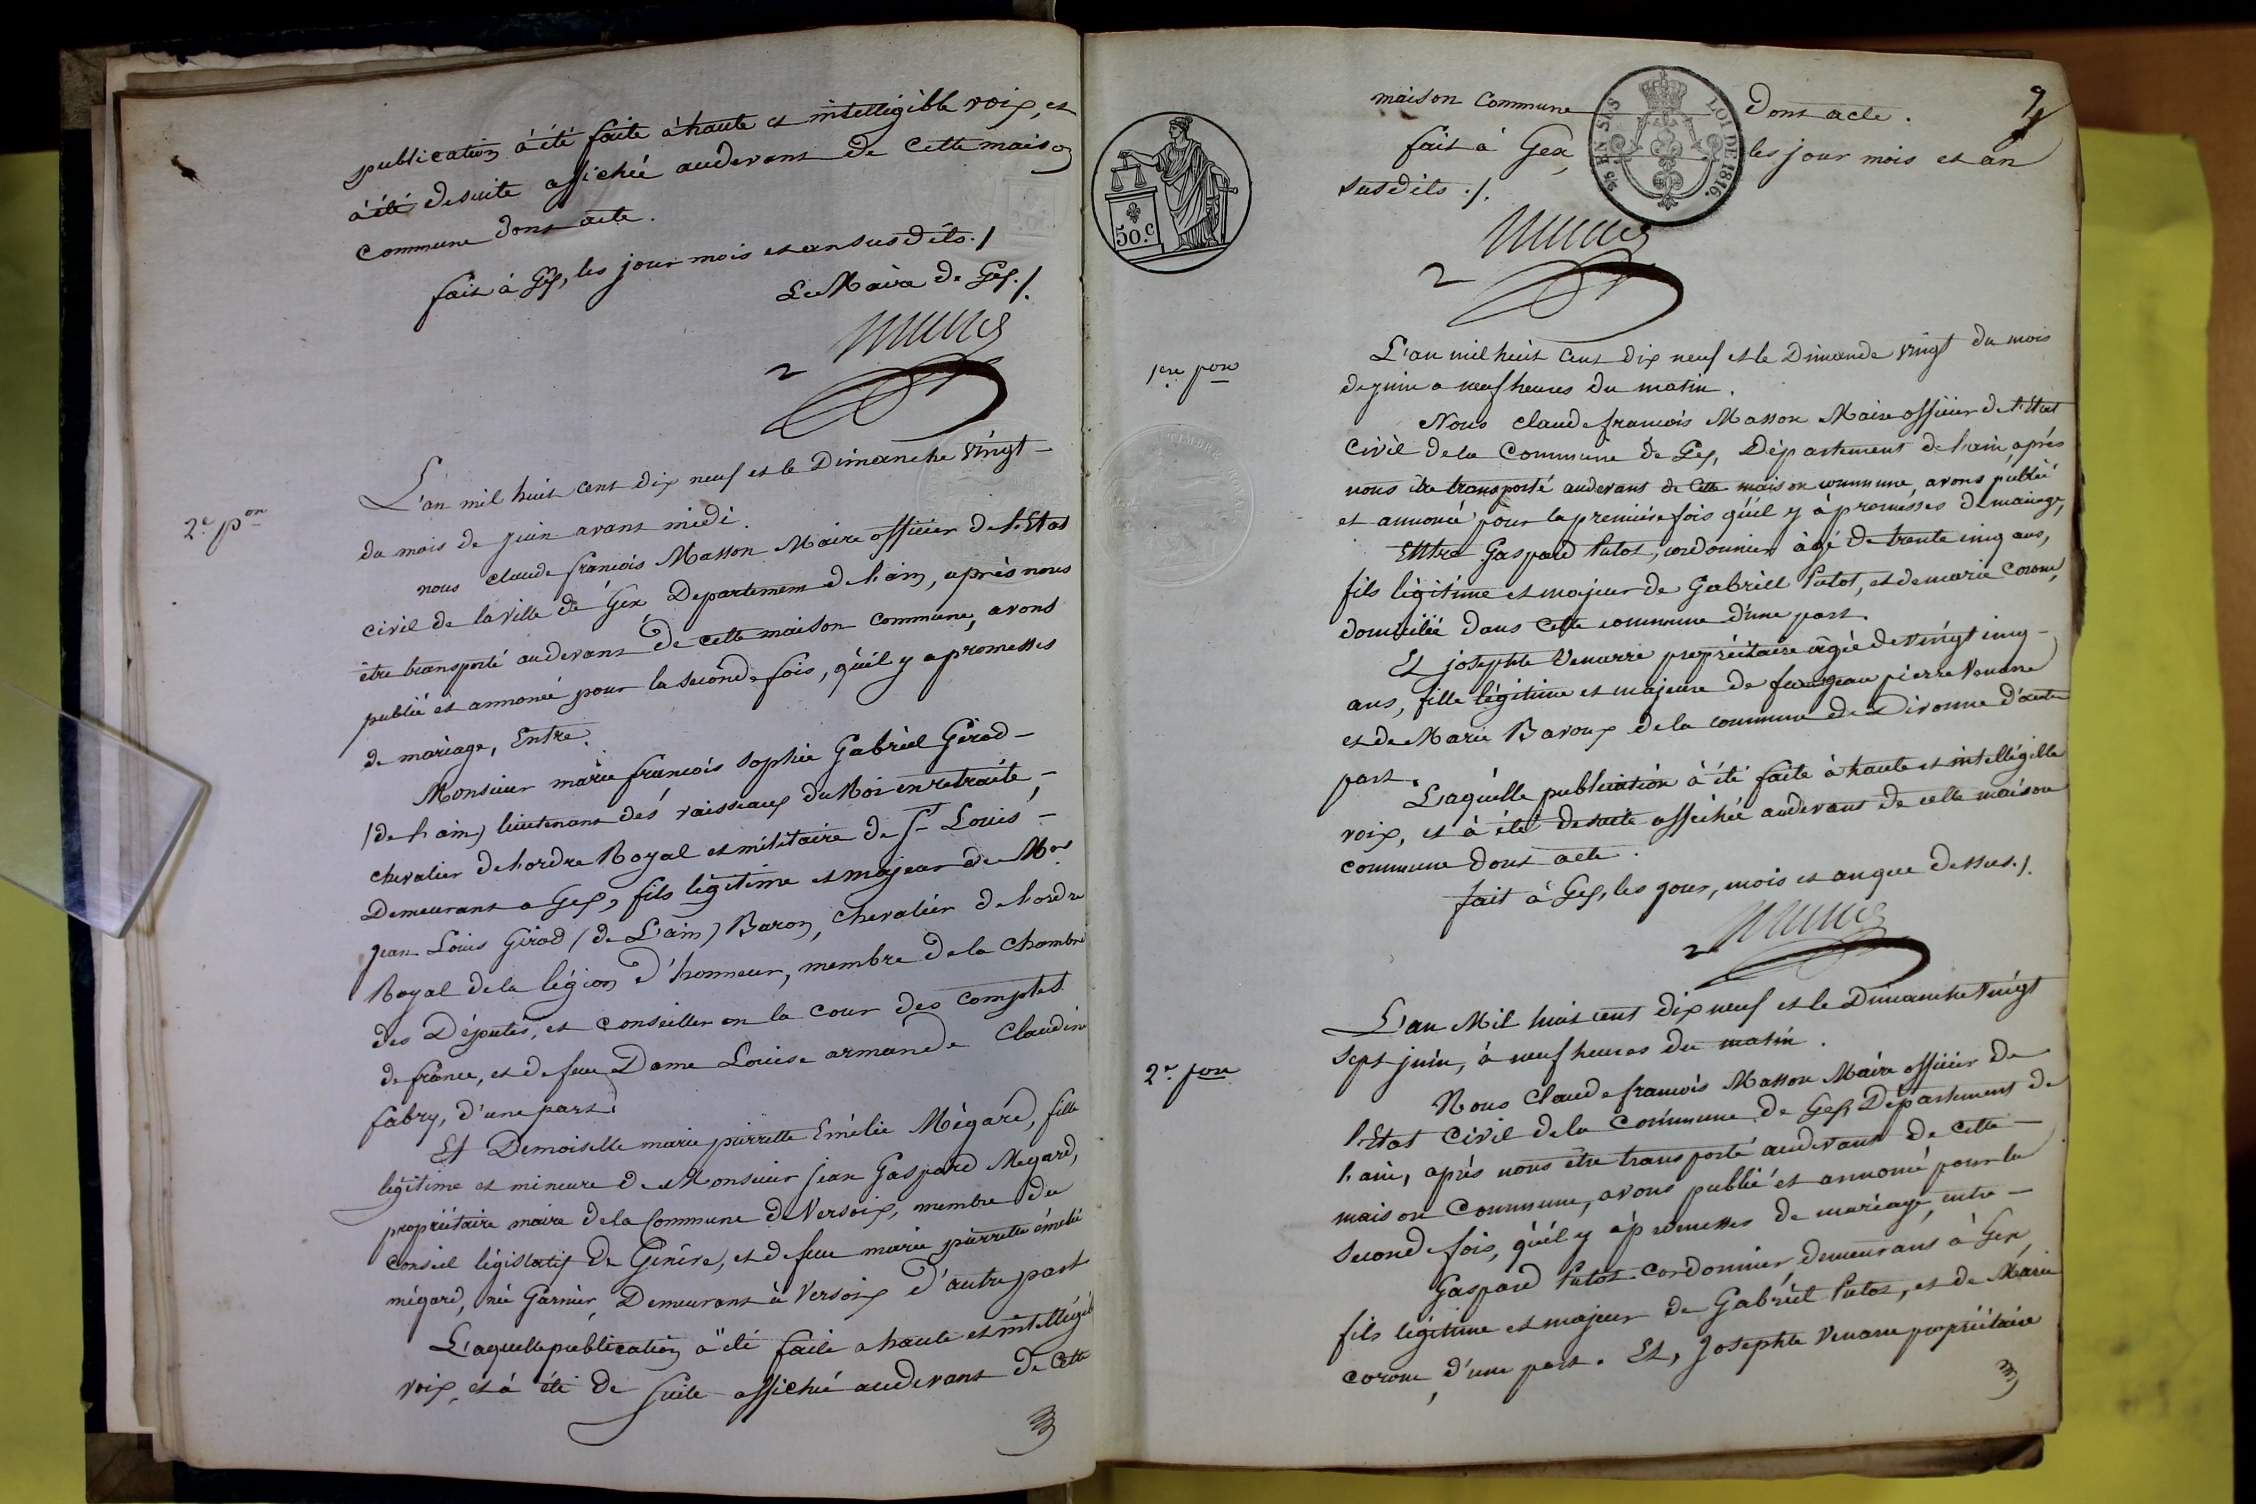 publication à été faite à haute et intelligible voix, et
à été desuite affiché audevant de cette maison
commune dont acte.
fait à Gex, les jour mois et an susdits ./.
Le Maire de Gex ./.
2e. pon
L'an mil huit cent dix neuf et le Dimanche vingt
du mois de juin avant midi.
nous claude françois Masson Maire officier de l'Etat
civil de la ville de Gex Departement de l'ain, après nous
être transporté audevant de cette maison commune, avons
publié et annoncé pour la seconde fois, qu'il y a promesses
de mariage, Entre.
Monsieur marie françois sophie Gabriel Girod
(de l'ain) lieutenant des vaisseaux du Roi en retraite,
chevalier de l'ordre Royal et militaire de St Louis
Demeurant a Gex, fils légitime et majeur de Mr
Jean Louis Girod (de L'ain) Baron, chevalier de l'ordre
Royal de la légion d'honneur, membre de la chambre
des Députés, et conseiller en la cour des comptes
de france, et de feue Dame Louise armande Claudine
fabry, d'une part.
Et Demoiselle marie pierrette Emélie Mégard, fille
légitime et mineure de Monsieur jean Gaspard Megard,
propriétaire maire de la Commune de Versoix, membre du
Conseil législatif de Genève, et de feue marie pierrette émelie
mégard, née Garnier, Demeurant à Versoix d'autre part
L'aquelle publication à été faite a haute et intelligible
voix, et à été de suite affiché audevant de cette
maison commune dont acte.
9
fait à Gex, les jour mois et an
susdits ./.
5/5 EN SUS
LOI DE 1816.
50.c
1ere pon
L'an mil huit cent dix neuf et le Dimande vingt du mois
de juin a neuf heures du matin.
Nous claude francois Masson Maire officier de l'Etat
Civil de la Commune de Gex, Département de l'ain, après
nous être transporté audevant de cette maison commune, avons publié
et annoncé pour la première fois qu'il y à promesses de mariage,
Entre Gaspard Putot, cordonnier àgé de trente cinq ans,
fils légitime et majeur de Gabriel Putot, et de marie Corone,
domicilié dans cette commune d'une part.
Et josephte Venarre propriétaire âgée de vingt cinq
ans, fille légitime et majeure de feu jean pierre Venarre
et de Marie Baroux de la commune de Divonne d'autre
part.
L'aquelle publication à été faite à haute et intelligible
voix, et à été desuite affiché audevant de cette maison
commune dont acte.
fait à Gex, les jour, mois et an que dessus ./.
2e. pon
L'an Mil huit cent dix neuf et le Dimanche Vingt
sept juin, à neuf heures du matin.
Nous Claude francois Masson Maire officier de
l'Etat Civil de la Commune de Gex Département de
l'ain, après nous être transporté audevant de cette
maison Commune, avons publié et annoncé pour la
seconde fois, qu'il y à promesses de mariage, entre
Gaspard Putot cordonnier, demeurant à Gex,
fils légitime et majeur de Gabriel Putot, et de Marie
corone, d'une part. Et, Josephte Venarre propriétaire